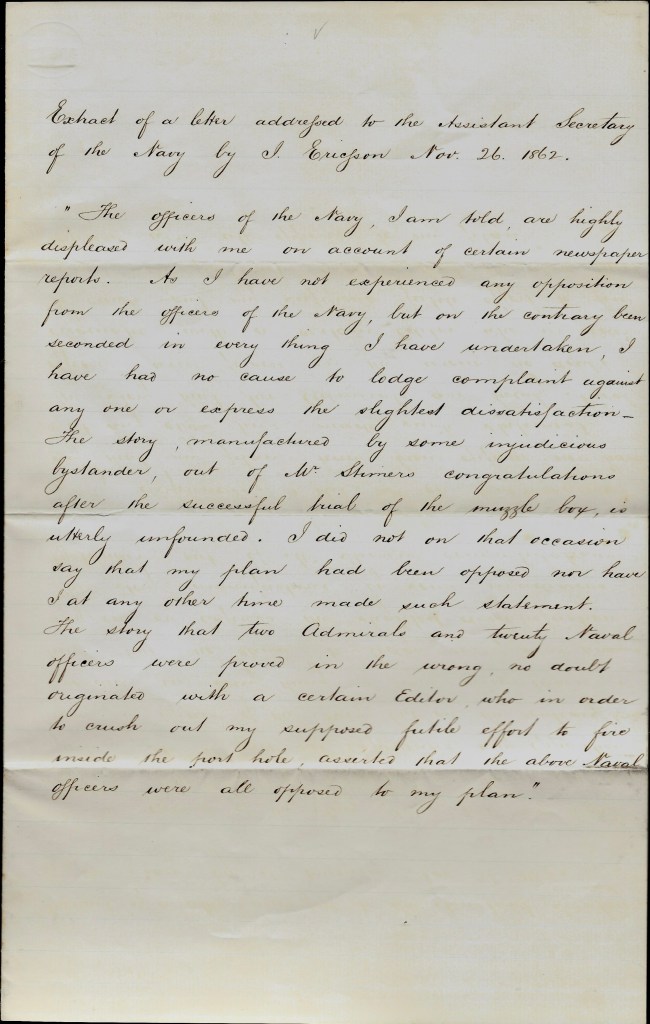 Extract of a letter addressed to the Assistant Secretary
of the Navy by J. Ericsson Nov. 26. 1862.
"The officers of the Navy, I am told, are highly
displeased with me on account of certain newspaper
reports. As I have not experienced any opposition
from the officers of the Navy, but on the contrary been
seconded in every thing I have undertaken, I
have had no cause to lodge complaint against
any one or express the slightest dissatisfaction—
The story, manufactured by some injudicious
bystander, out of Mr. Stimers congratulations
after the successful trial of the muzzle box, is
utterly unfounded. I did not on that occasion
say that my plan had been opposed nor have
I at any other time made such statement.
The story that two Admirals and twenty Naval
officers were proved in the wrong, no doubt
originated with a certain Editor, who in order
to crush out my supposed futile effort to fire
inside the port hole, asserted that the above Naval
officers were all opposed to my plan."